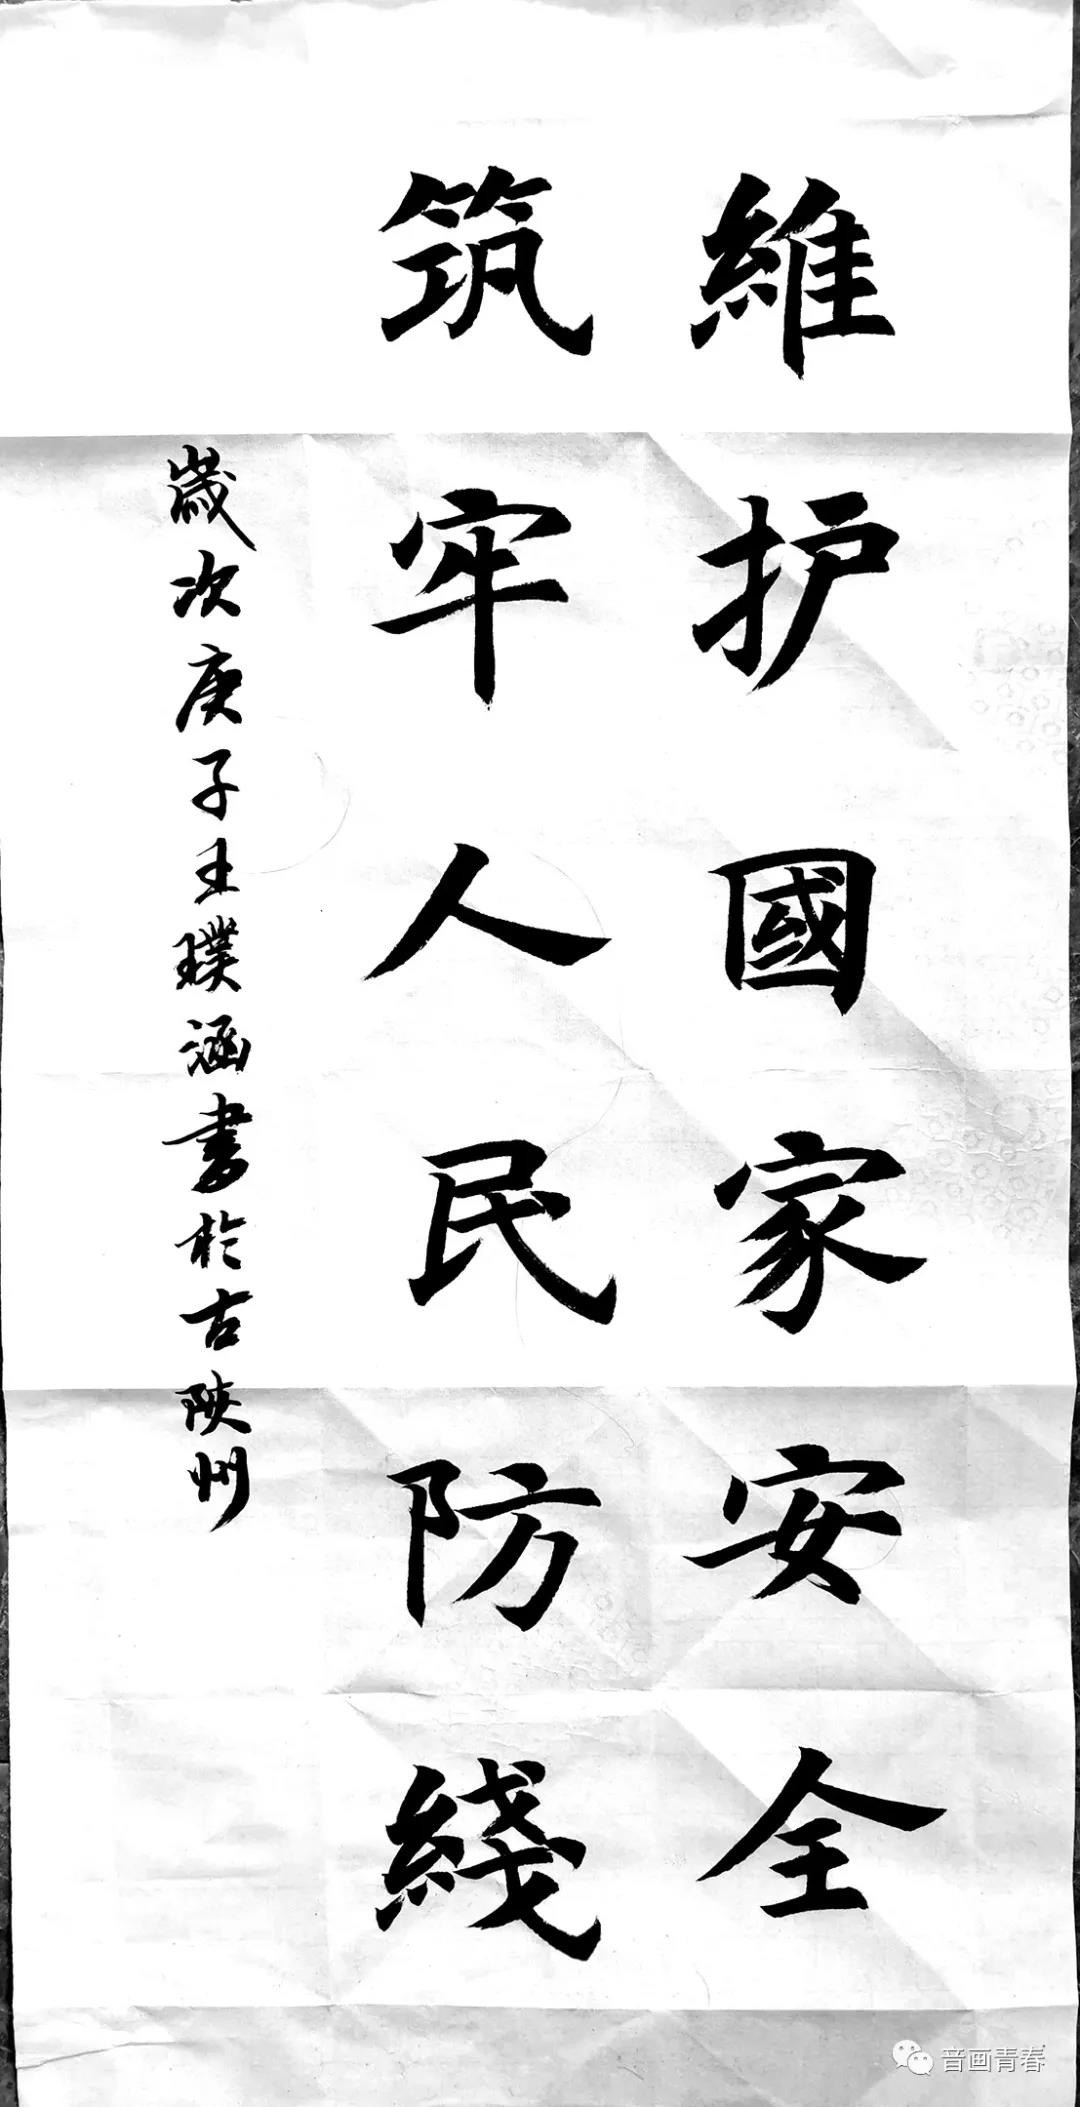 維护國家安全
筑牢人民防綫
歲次庚子王璞涵書於古陝州
音画青春